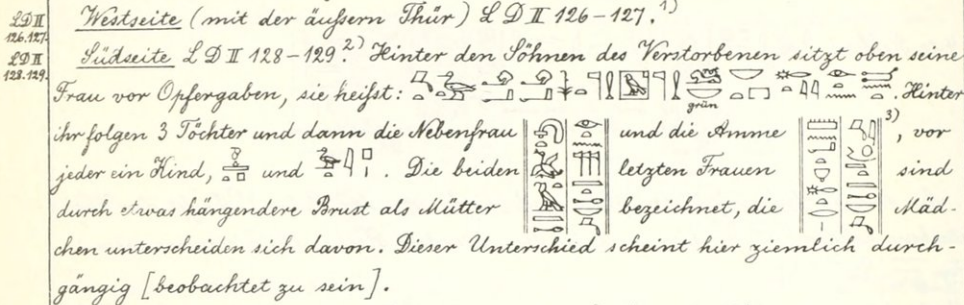 LD II 126.127. Westseite (mit der äußern Thür) L D II 126–127.¹⁾
LD II 128.129. Südseite L D II 128–129.²⁾ Hinter den Söhnen des Verstorbenen sitzt oben seine
Frau vor Opfergaben, sie heißt: grün . Hinter
ihr folgen 3 Töchter und dann die Nebenfrau und die Amme ³⁾, vor
jeder ein Kind, und . Die beiden letzten Frauen sind
durch etwas hängendere Brust als Mütter bezeichnet, die Mäd-
chen unterscheiden sich davon. Dieser Unterschied scheint hier ziemlich durch-
gängig [beobachtet zu sein].